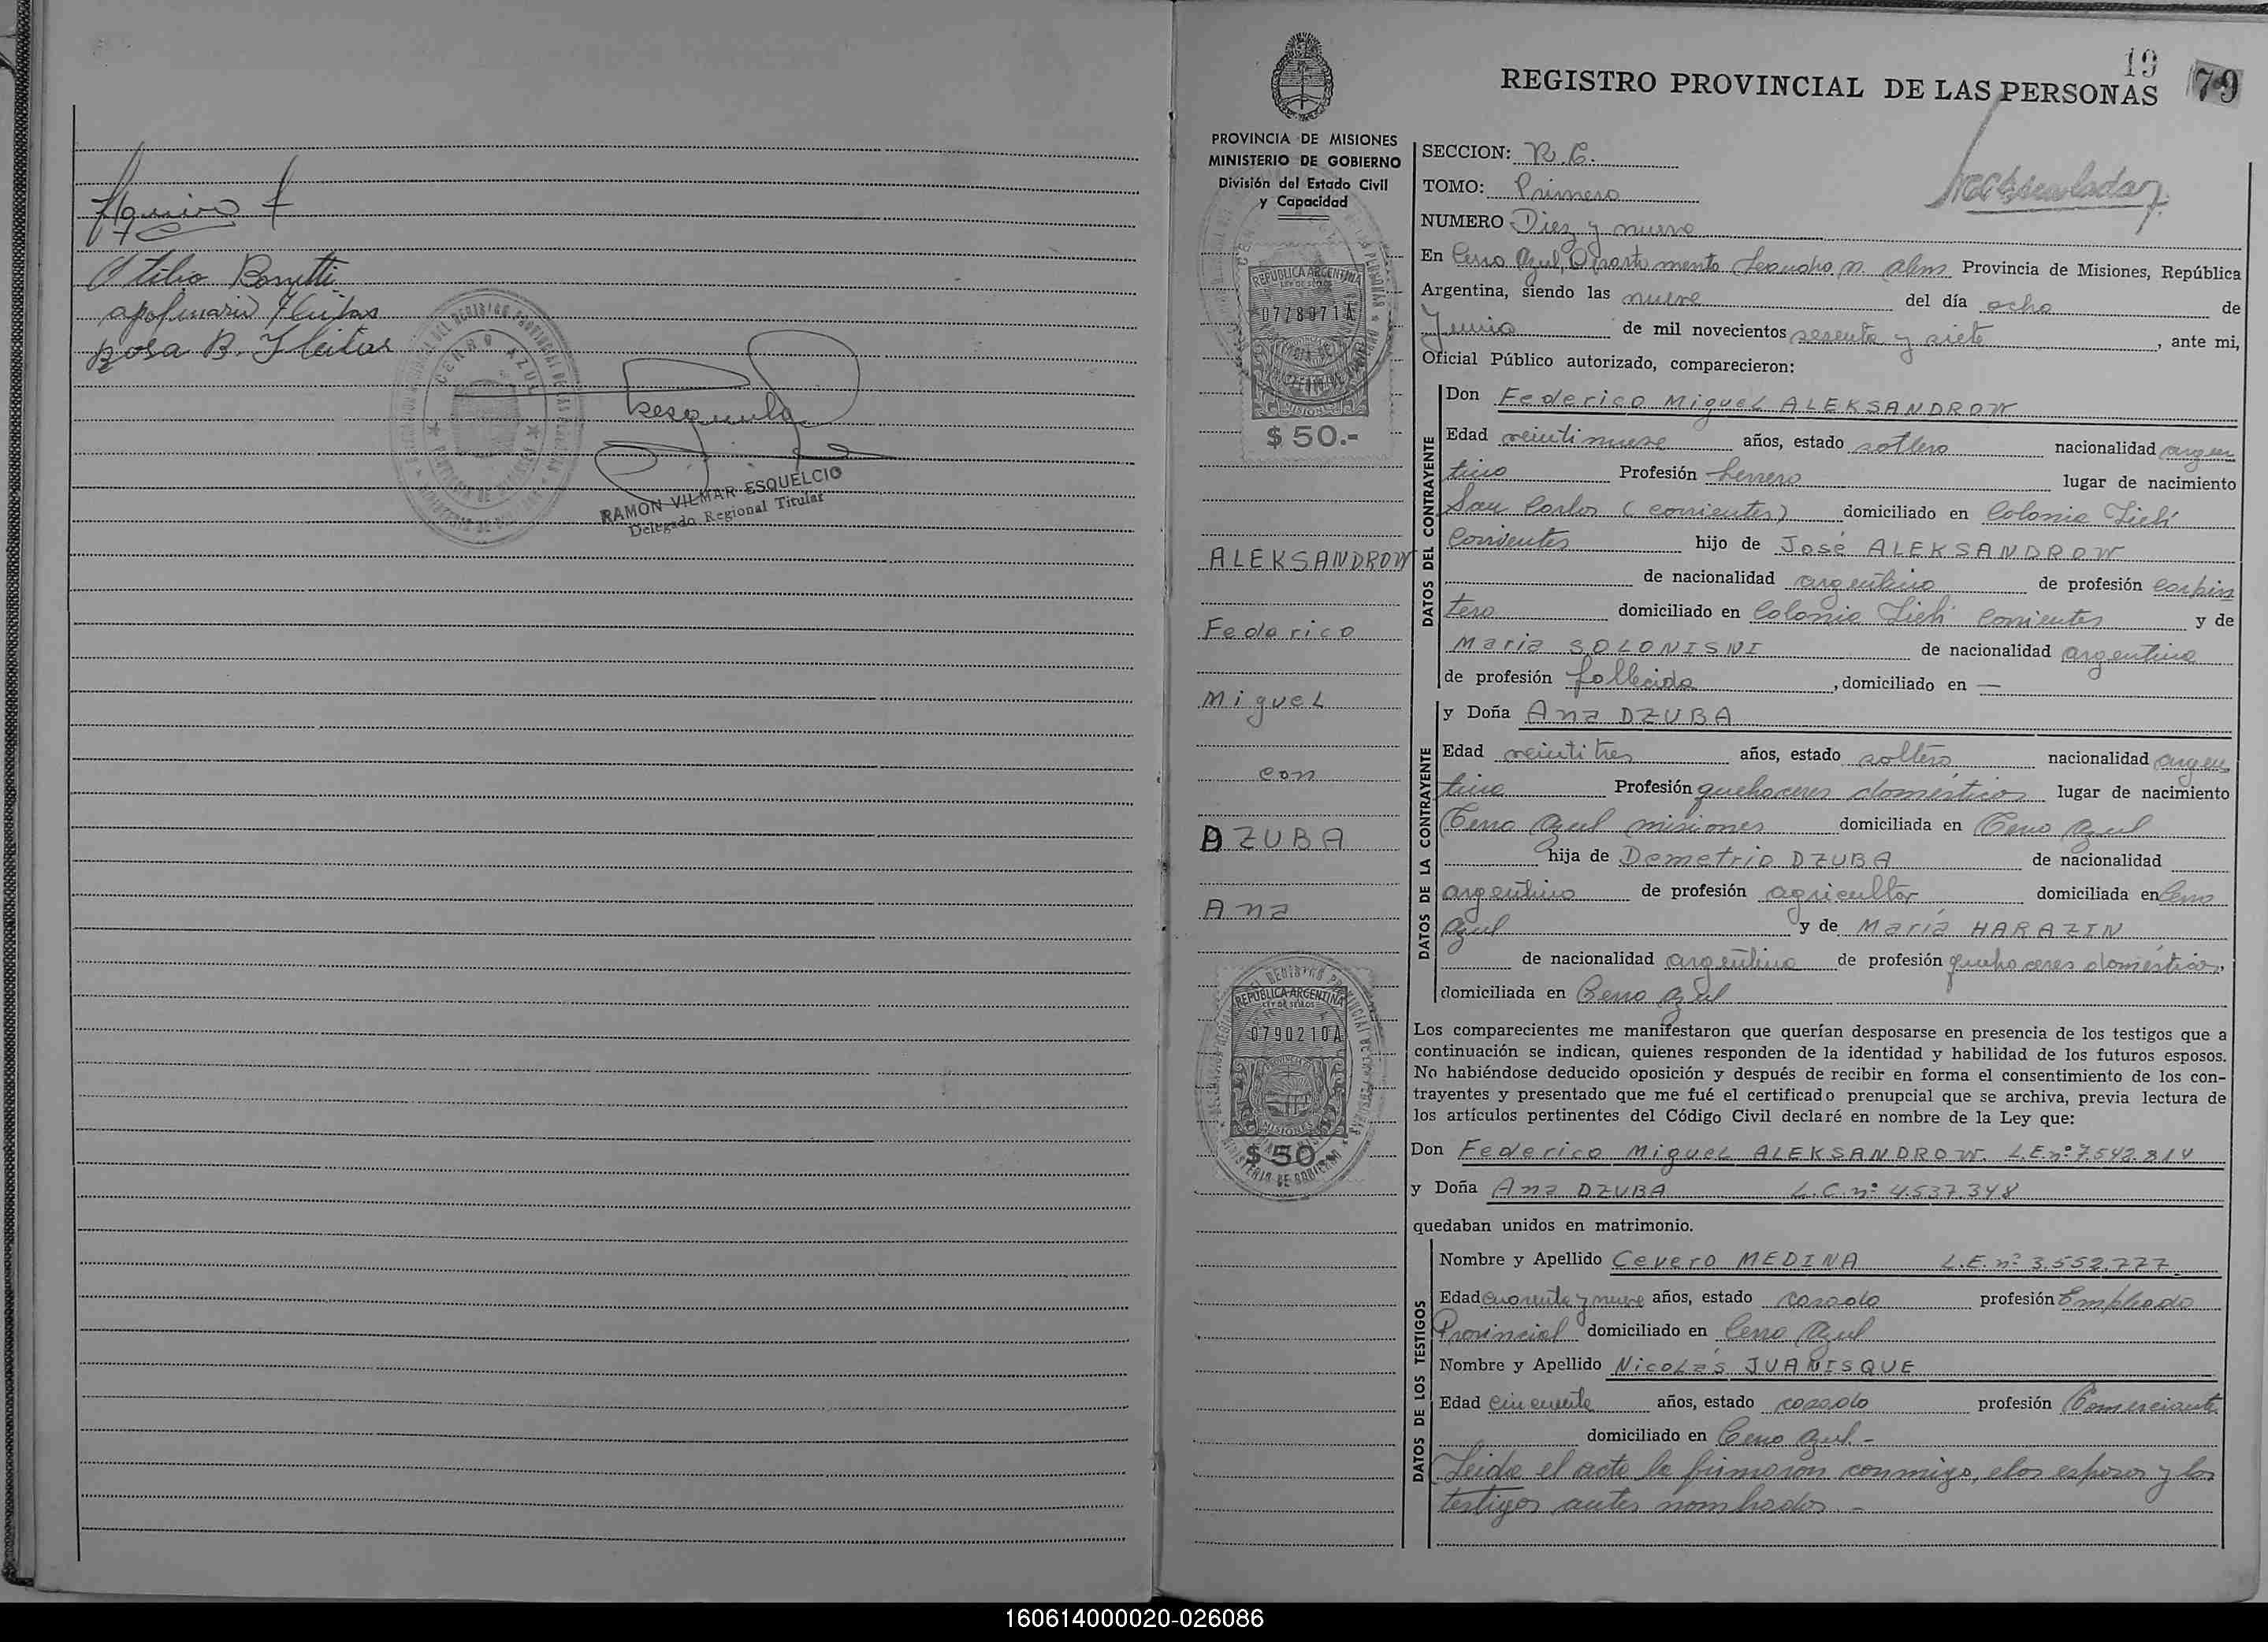 Otilio Bonetti
Apolinario Fleitas
Rosa B. Fleitas
RAMON VILMAR ESQUELCIO
Delegado Regional Titular
19
79
REGISTRO PROVINCIAL DE LAS PERSONAS
PROVINCIA DE MISIONES
MINISTERIO DE GOBIERNO
División del Estado Civil
y Capacidad
REPUBLICA ARGENTINA
LEY DE SELLOS
0778971A
MISIONES
$ 50.-
ALEKSANDROW
Federico
Miguel
con
DZUBA
Ana
REPUBLICA ARGENTINA
LEY DE SELLOS
0790210A
MISIONES
$ 50.-
SECCION: R.C.
TOMO: Primero
NUMERO Diez y nueve
En Cerro Azul, Departamento Leandro N. Alem Provincia de Misiones, República
Argentina, siendo las nueve del día ocho de
Junio de mil novecientos sesenta y siete, ante mi,
Oficial Público autorizado, comparecieron:
DATOS DEL CONTRAYENTE
Don Federico Miguel ALEKSANDROW
Edad veintinueve años, estado soltero nacionalidad argen
tino Profesión herrero lugar de nacimiento
San Carlos (Corrientes) domiciliado en Colonia Liebi
Corrientes hijo de José ALEKSANDROW
de nacionalidad argentino de profesión carpin
tero domiciliado en Colonia Liebi Corrientes y de
Maria SOLONISNI de nacionalidad argentina
de profesión fallecida, domiciliado en —
DATOS DE LA CONTRAYENTE
y Doña Ana DZUBA
Edad veintitres años, estado soltera nacionalidad argen
tina Profesión quehaceres domésticos lugar de nacimiento
Cerro Azul Misiones domiciliada en Cerro Azul
hija de Demetrio DZUBA de nacionalidad
argentino de profesión agricultor domiciliada en Cerro
Azul y de María HARAZIN
de nacionalidad argentina de profesión quehaceres domésticos,
domiciliada en Cerro Azul
Los comparecientes me manifestaron que querían desposarse en presencia de los testigos que a
continuación se indican, quienes responden de la identidad y habilidad de los futuros esposos.
No habiéndose deducido oposición y después de recibir en forma el consentimiento de los con-
trayentes y presentado que me fué el certificado prenupcial que se archiva, previa lectura de
los artículos pertinentes del Código Civil declaré en nombre de la Ley que:
Don Federico Miguel ALEKSANDROW. L.E. nº 7.542.814
y Doña Ana DZUBA L.C. nº 4.537.348
quedaban unidos en matrimonio.
DATOS DE LOS TESTIGOS
Nombre y Apellido Cevero MEDINA L.E. nº 3.552.777
Edad cuarenta y nueve años, estado casado profesión Empleado
Provincial domiciliado en Cerro Azul
Nombre y Apellido Nicolás JUANISQUE
Edad cincuenta años, estado casado profesión Comerciante
domiciliado en Cerro Azul.-
Leida el acta la firmaron conmigo, elos esposos y los
testigos antes nombrados.-
160614000020-026086